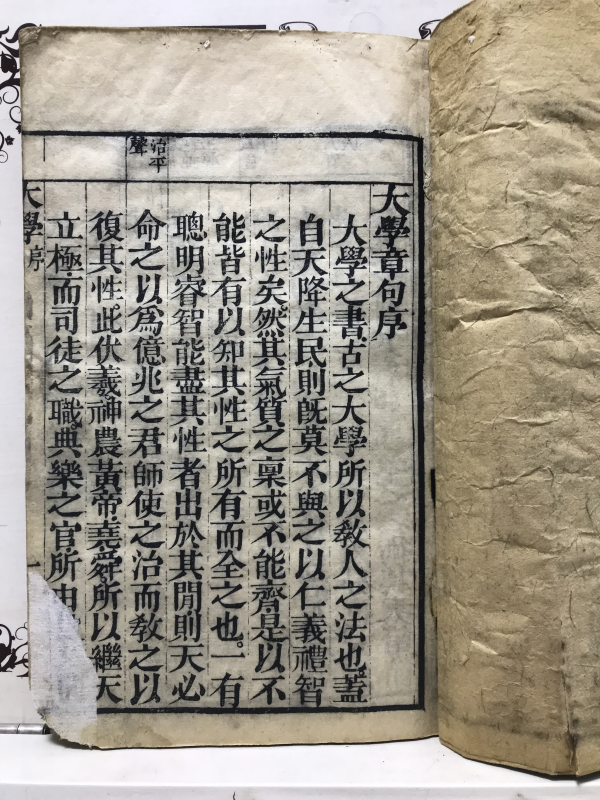 治平
聲
大學章句序
大學之書古之大學所以敎人之法也。蓋
自天降生民則旣莫不與之以仁義禮智
之性矣。然其氣質之稟或不能齊是以不
能皆有以知其性之所有而全之也。一有
聰明睿智能盡其性者出於其閒則天必
命之以爲億兆之君師使之治而敎之以
復其性。此伏羲神農黃帝堯舜所以繼天
立極而司徒之職典樂之官所由
大學序
一